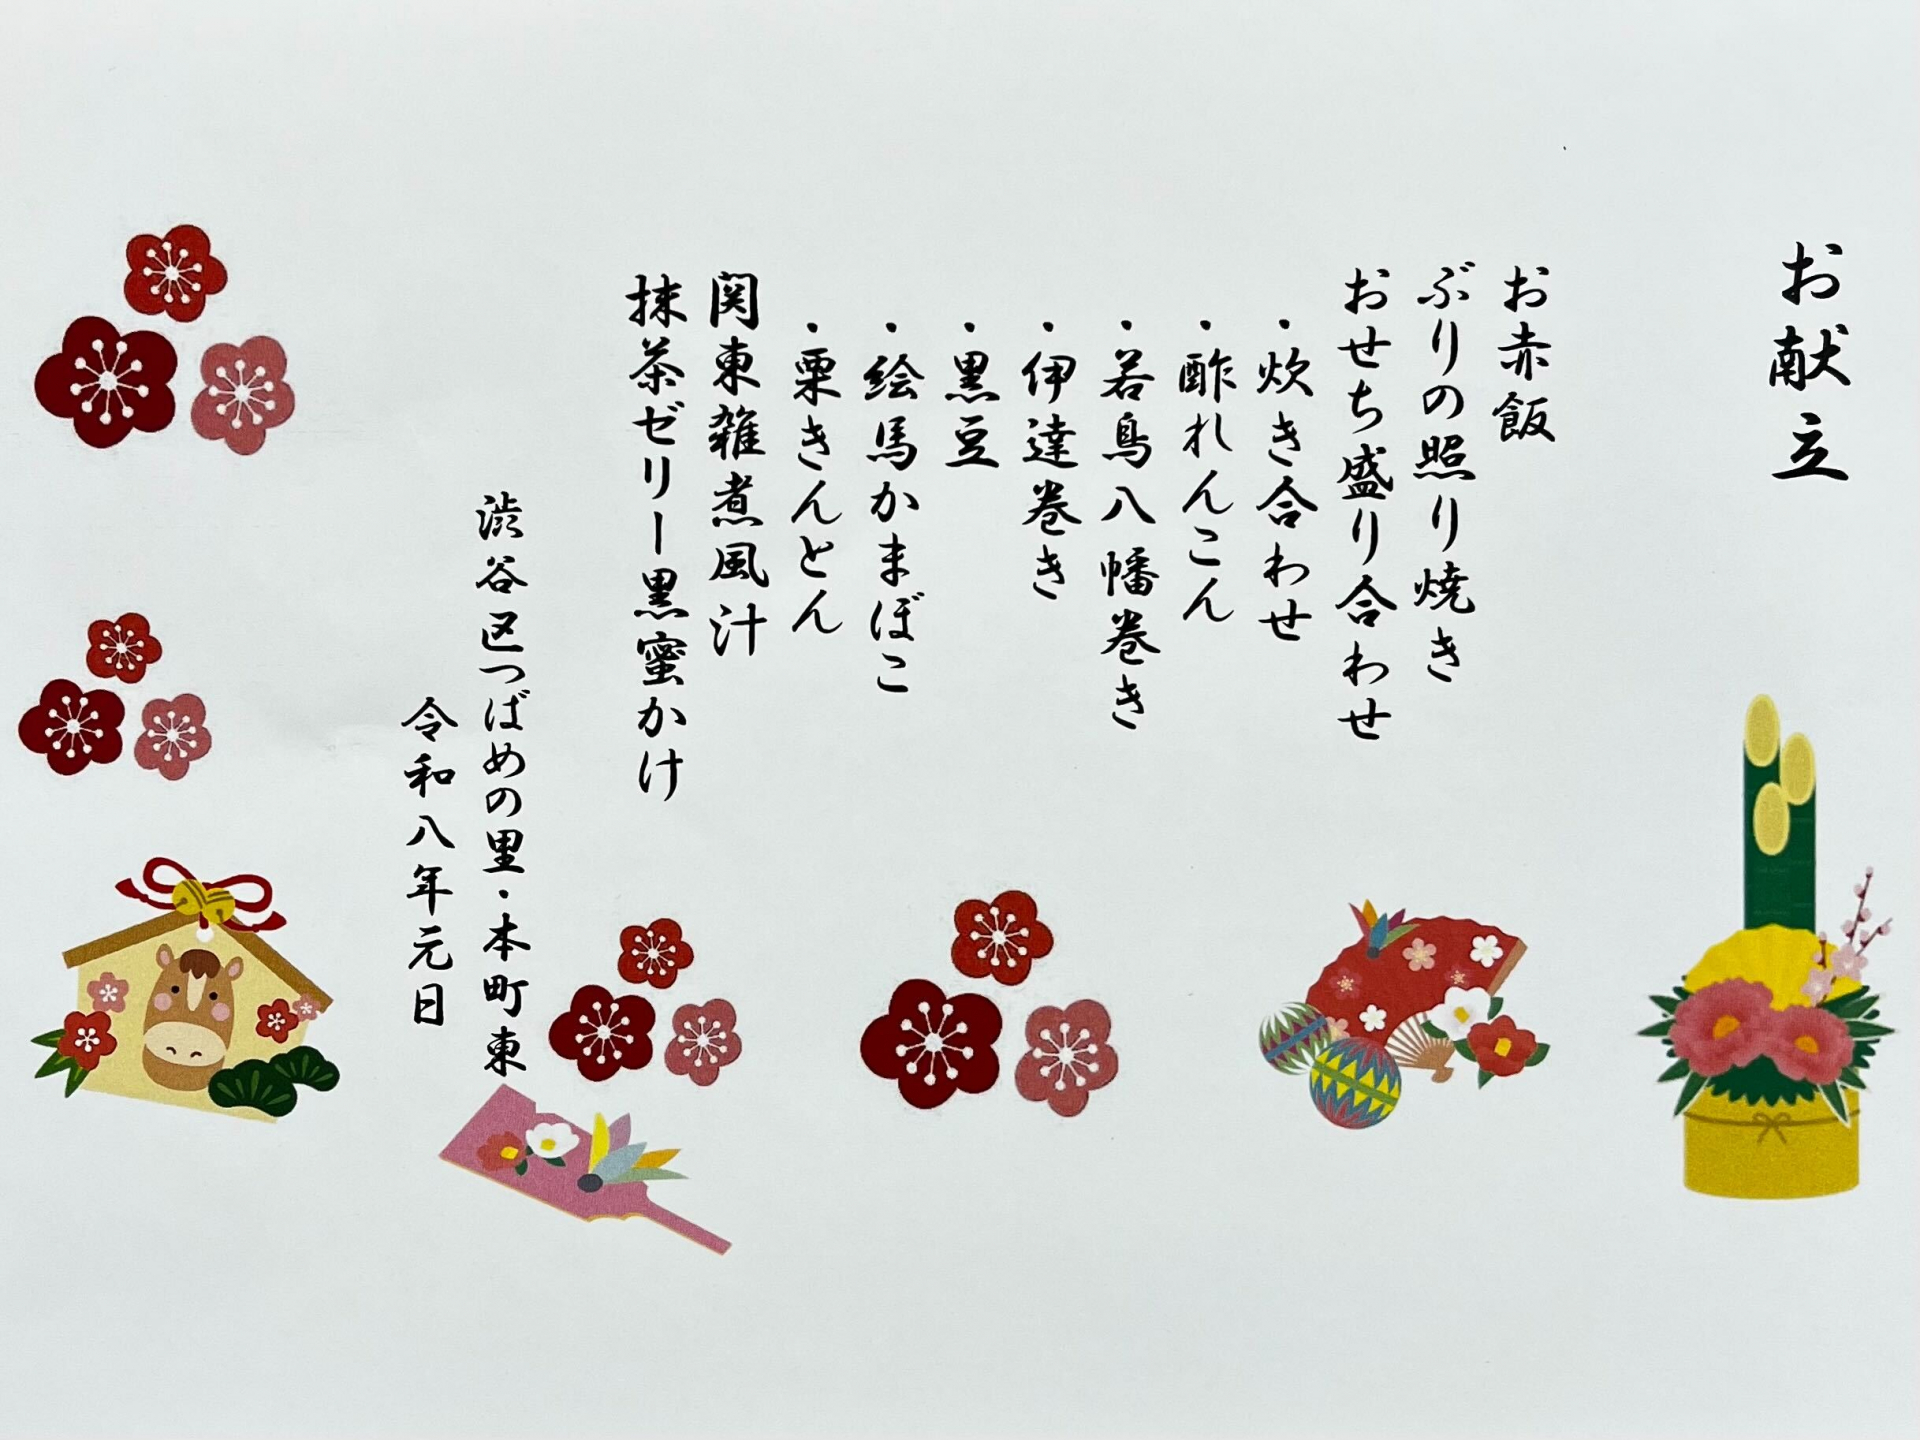 お献立
お赤飯
ぶりの照り焼き
おせち盛り合わせ
・炊き合わせ
・酢れんこん
・若鳥八幡巻き
・伊達巻き
・黒豆
・絵馬かまぼこ
・栗きんとん
関東雑煮風汁
抹茶ゼリー黒蜜かけ
渋谷区つばめの里・本町東
令和八年元日